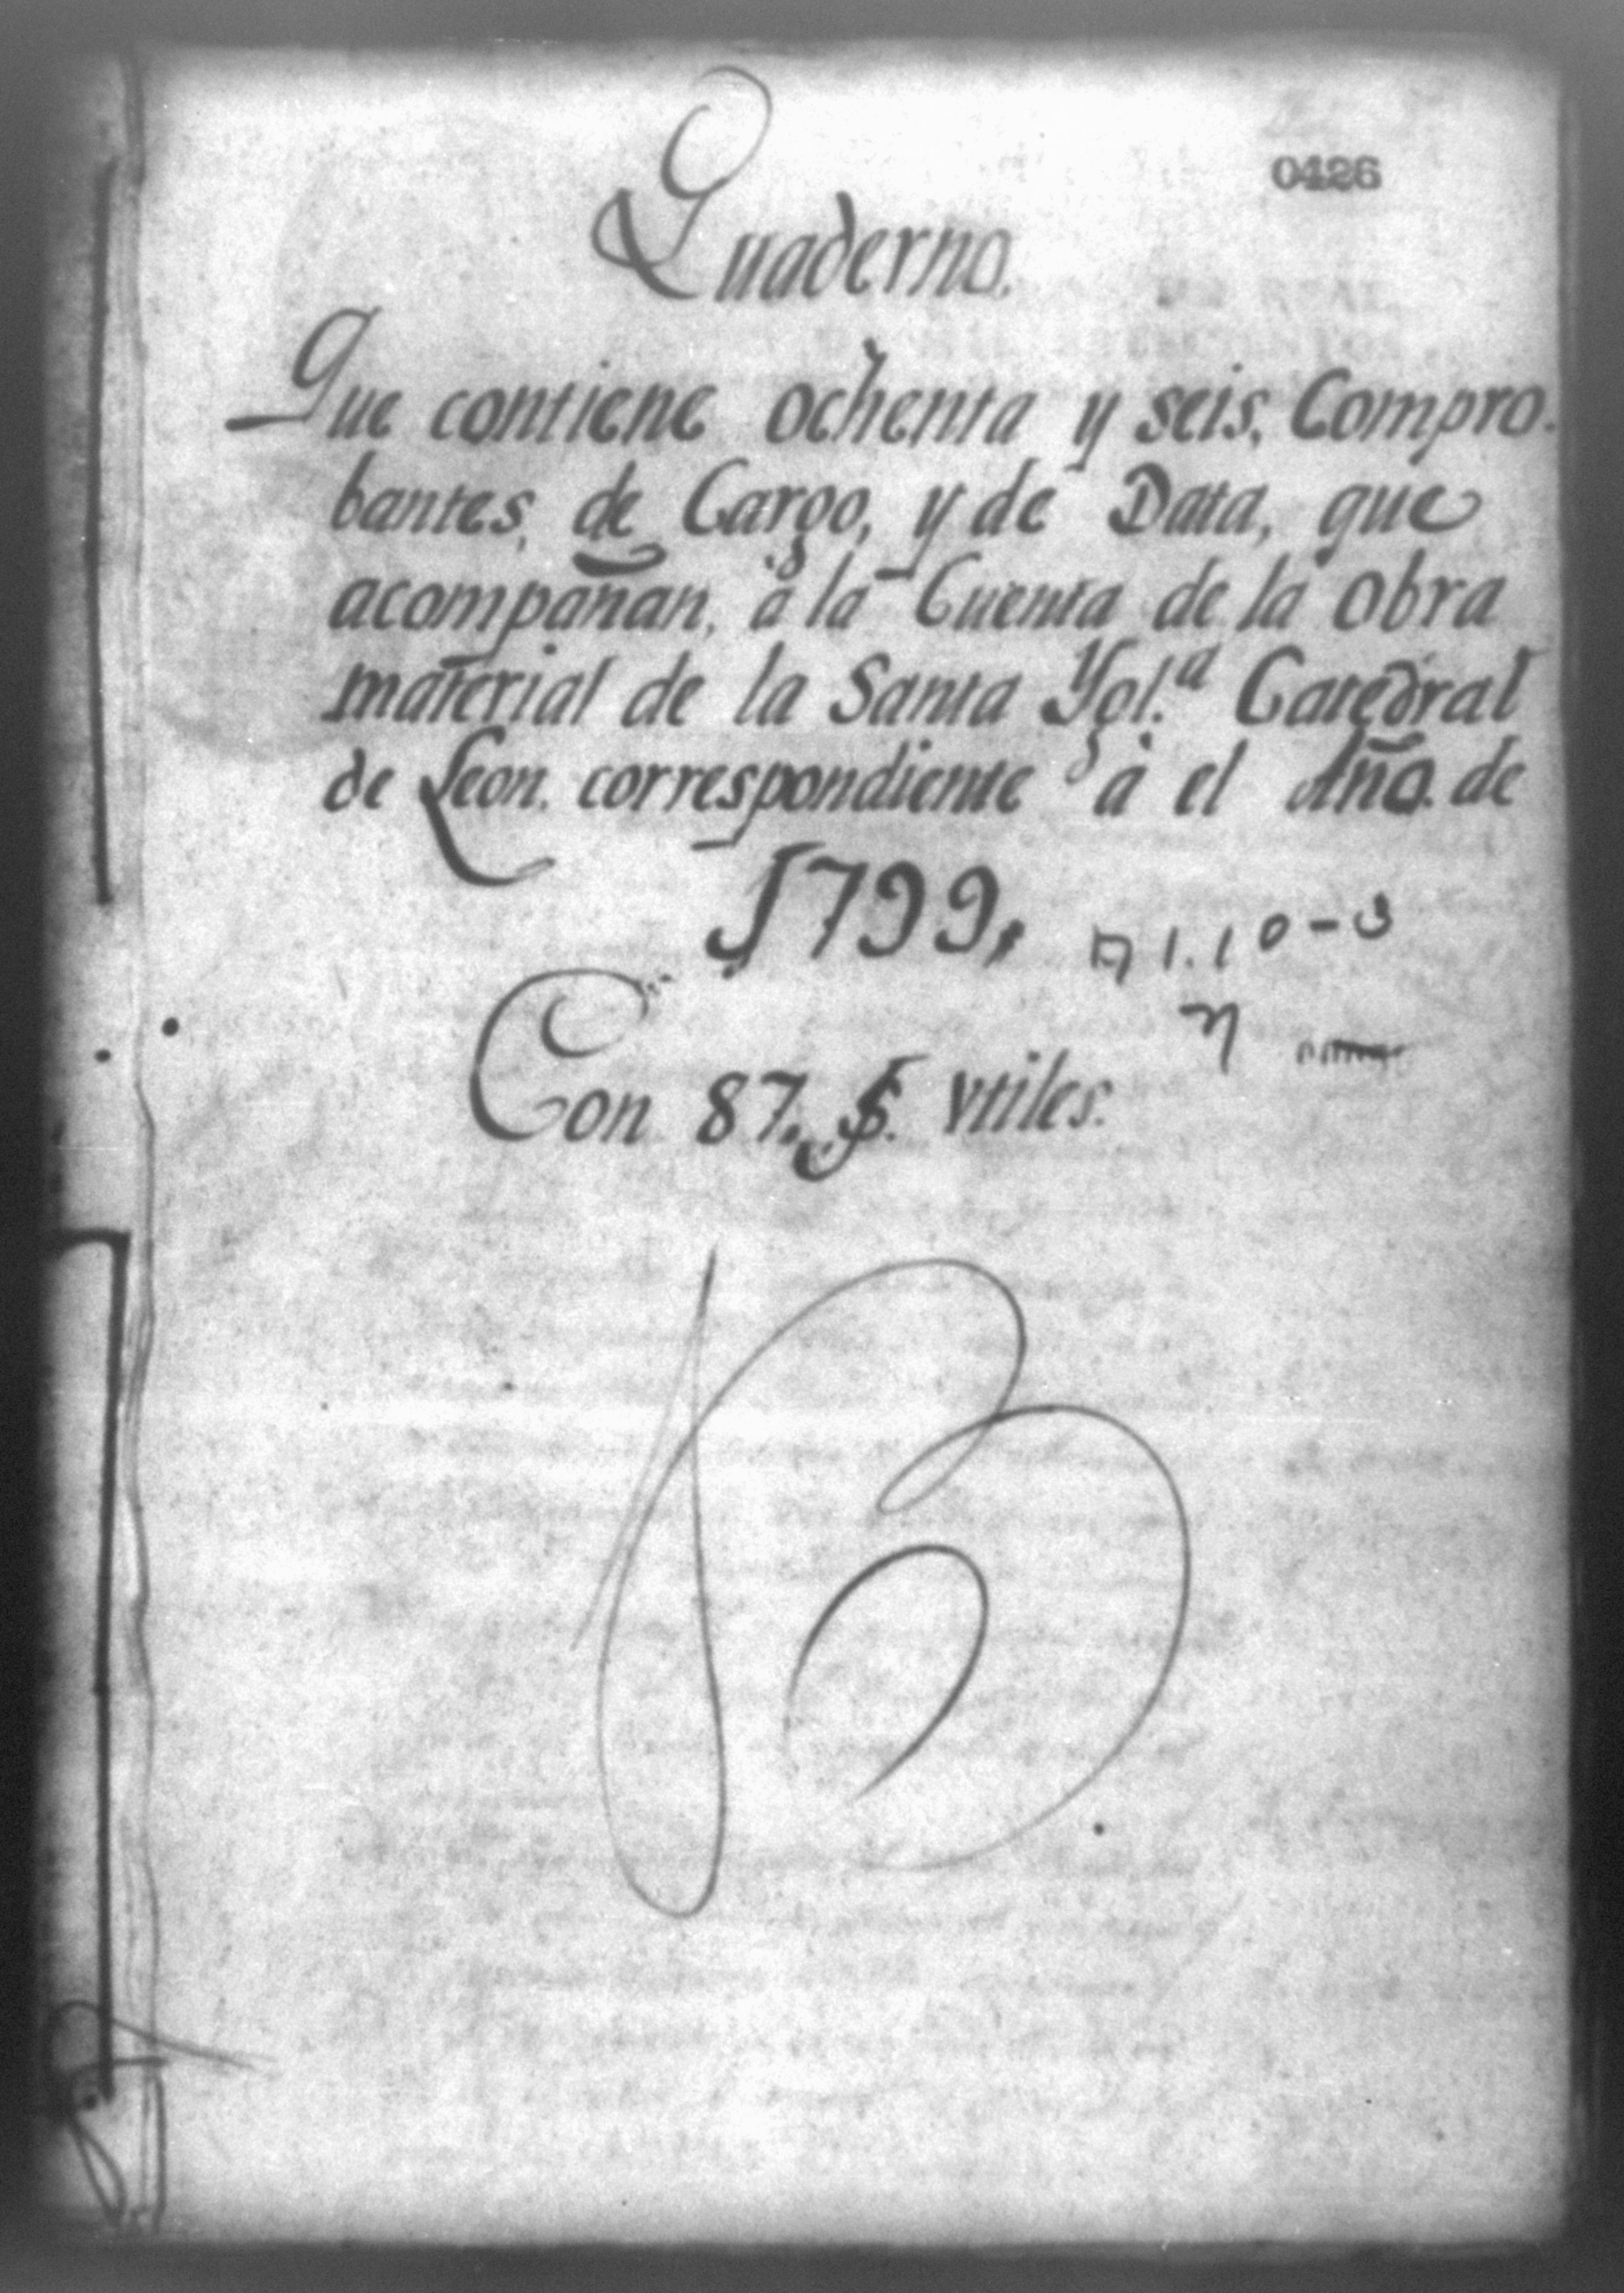 0426
Quaderno.
Que contiene ochenta y seis, Compro-
bantes, de Cargo, y de Data, que
acompañan, â la Cuenta de la obra
material de la Santa Ygl.ª Catedral
de Leon. correspondiente â el Año. de
1799,
A1.10-3
Con 87, f. Vtiles.